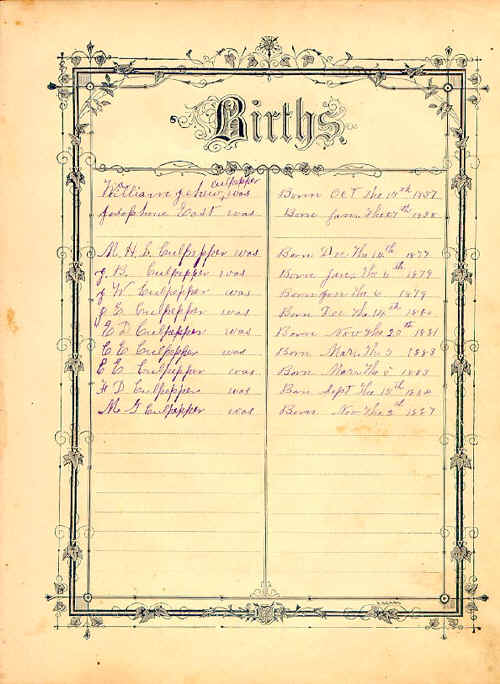 Births.
Culpepper
William Jehew was Born Oct the 14th 1857
Josephine East was Born Jan the 27th 1858
M. H. L. Culpepper was Born Dec the 16th 1877
J. B. Culpepper was Born Jan the 6th 1879
J W Culpepper was Born Jan the 6 1879
J E Culpepper was Born Dec the 14th 1880
E D Culpepper was Born Nov the 20th 1881
C E Culpepper was Born Mar the 5 1883
E E Culpepper was Born Mar the 5 1883
H D Culpepper was Born Sept the 15th 1884
M G Culpepper was Born Nov the 2nd 1887